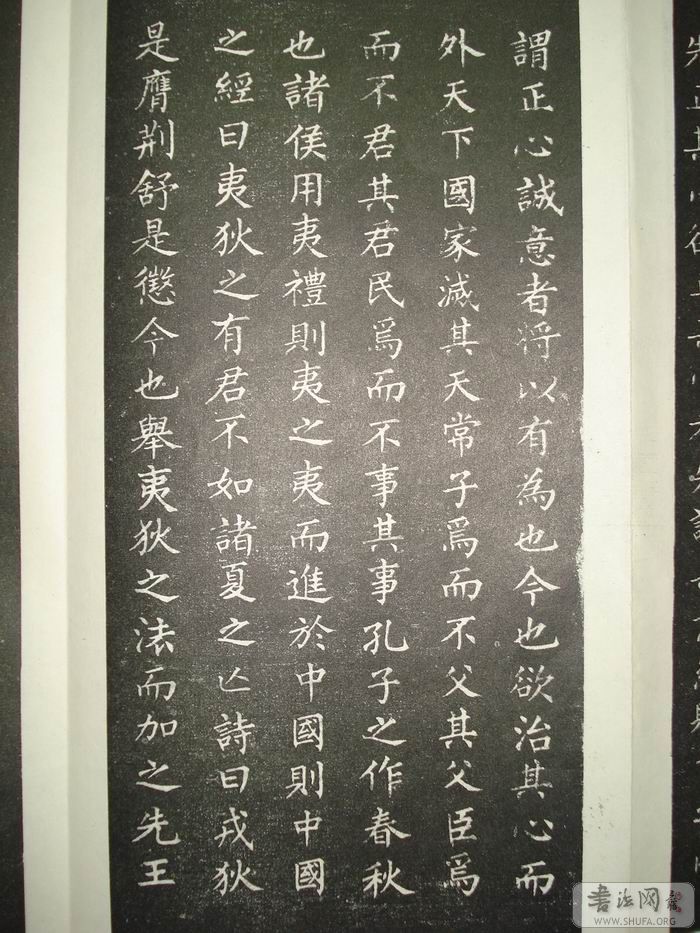 謂正心誠意者將以有為也今也欲治其心而
外天下國家滅其天常子焉而不父其父臣焉
而不君其君民焉而不事其事孔子之作春秋
也諸侯用夷禮則夷之夷而進於中國則中國
之經曰夷狄之有君不如諸夏之亡詩曰戎狄
是膺荆舒是懲今也舉夷狄之法而加之先王
书法网
WWW.SHUFA.ORG